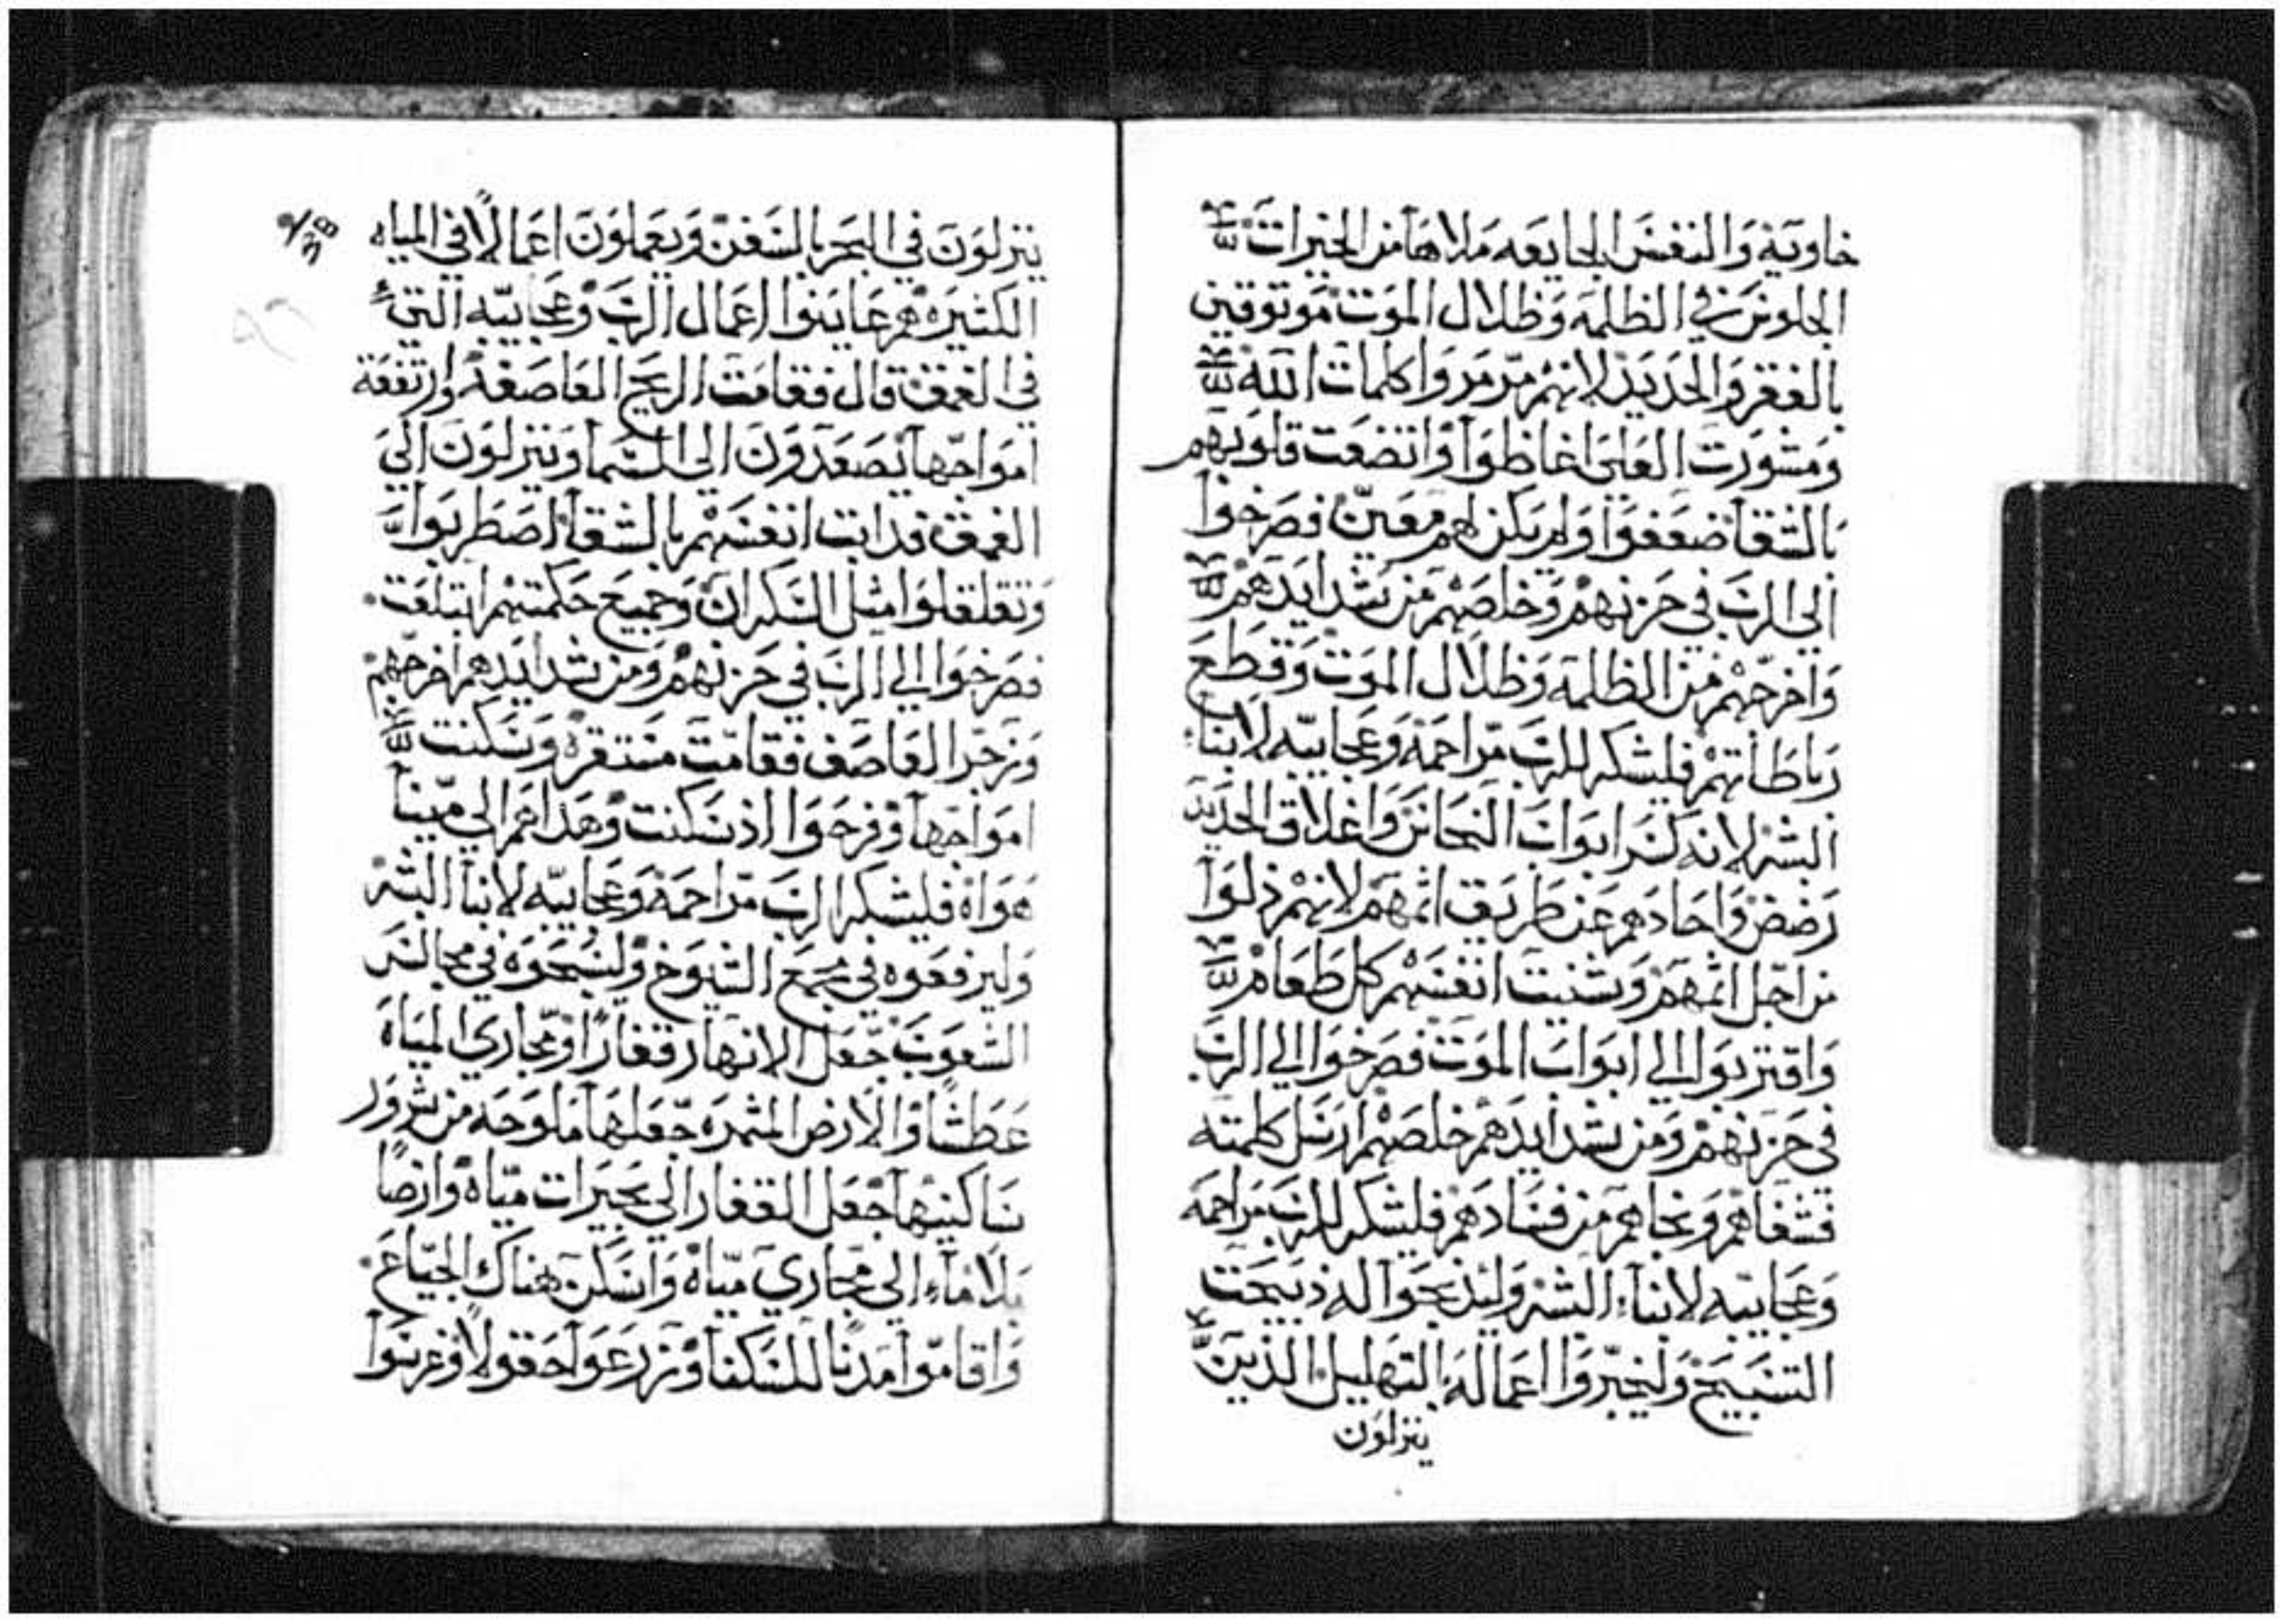 خاوية والنفس الجايعه ملاها من الخيرات
الجلوس في الظلمه وظلال الموت موتوقين
بالفقر والحديد لانهم مرمروا كلمات الله
ومشورت العلي اغاظوا واتضعت قلوبهم
بالشقا ضعفوا ولم يكن لهم معين فصرخوا
الي الرب في حزنهم وخلصهم من شدايدهم
واخرجهم من الظلمه وظلال الموت وقطع
رباطاتهم فليشكر للرب مراحمه وعجايبه لابناء
البشر لانه كسر ابواب النحاس واغلاق الحديد
رضض واحادهم عن طريق اثمهم لانهم ذلوا
من اجل اثمهم وشنيت انفسهم كل طعام
واقتربوا الي ابواب الموت فصرخوا الي الرب
في حزنهم ومن شدايدهم خلصهم ارسل كلمته
فشفاهم ونجاهم من فسادهم فليشكر للرب مراحمه
وعجايبه لابناء البشر وليذبحوا له ذبيحت
التسبيح وليخبروا اعماله بالتهليل الذين
ينزلون
ينزلون في البحر بالسفن ويعملون اعمالا في المياه
الكثيره هم عاينوا اعمال الرب وعجايبه التي
في العمق قال فقامت الريح العاصفه وارتفعة
امواجها يصعدون الي السما وينزلون الي
العمق فدابت انفسهم بالشقا اضطربوا
وتقلقلوا مثل السكران وجميع حكمتهم ابتلعت
فصرخوا الي الرب في حزنهم ومن شدايدهم اخرجهم
وزجر العاصف فقامت مستقره وسكنت
امواجها وفرحوا اذ سكنت وهداهم الي مينا
هواه فليشكر الرب مراحمه وعجايبه لابنا البشر
وليرفعوه في مجمع الشيوخ وليسبحوه في مجالس
الشعوب جعل الانهار قفارا ومجاري المياه
عطشا والارض المثمره جعلها ملوحه من شرور
ساكنيها جعل القفار الي بحيرات مياه وارضا
بلا ماء الي مجاري مياه واسكن هناك الجياع
واقاموا مدنا للسكنا وزرعوا حقولا وغرسوا